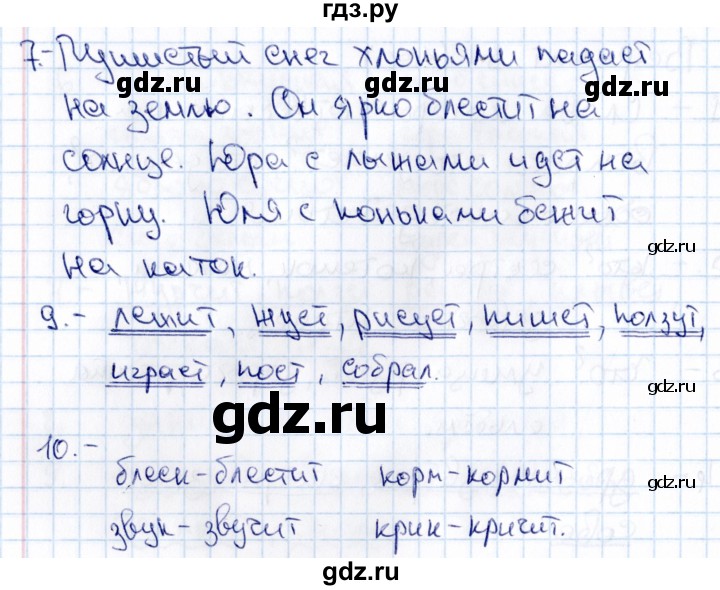 гдз.ру
7.- Пушистый снег хлопьями падает
gdz.ru gdz.ru gdz.ru
на землю. Он ярко блестит на
солнце. Юра с лыжами идет на
gdz.ru gdz.ru
горку. Юля с коньками бежит
gdz.ru
на каток.
9.- лежит, жует, рисует, пишет, ползут,
играет, поет, собрал.
gdz.ru
gdz.ru
10.-
блеск-блестит корм-кормит
gdz.ru gdz.ru gdz.ru
звук-звучит крик-кричит.
gdz.ru
gdz.ru